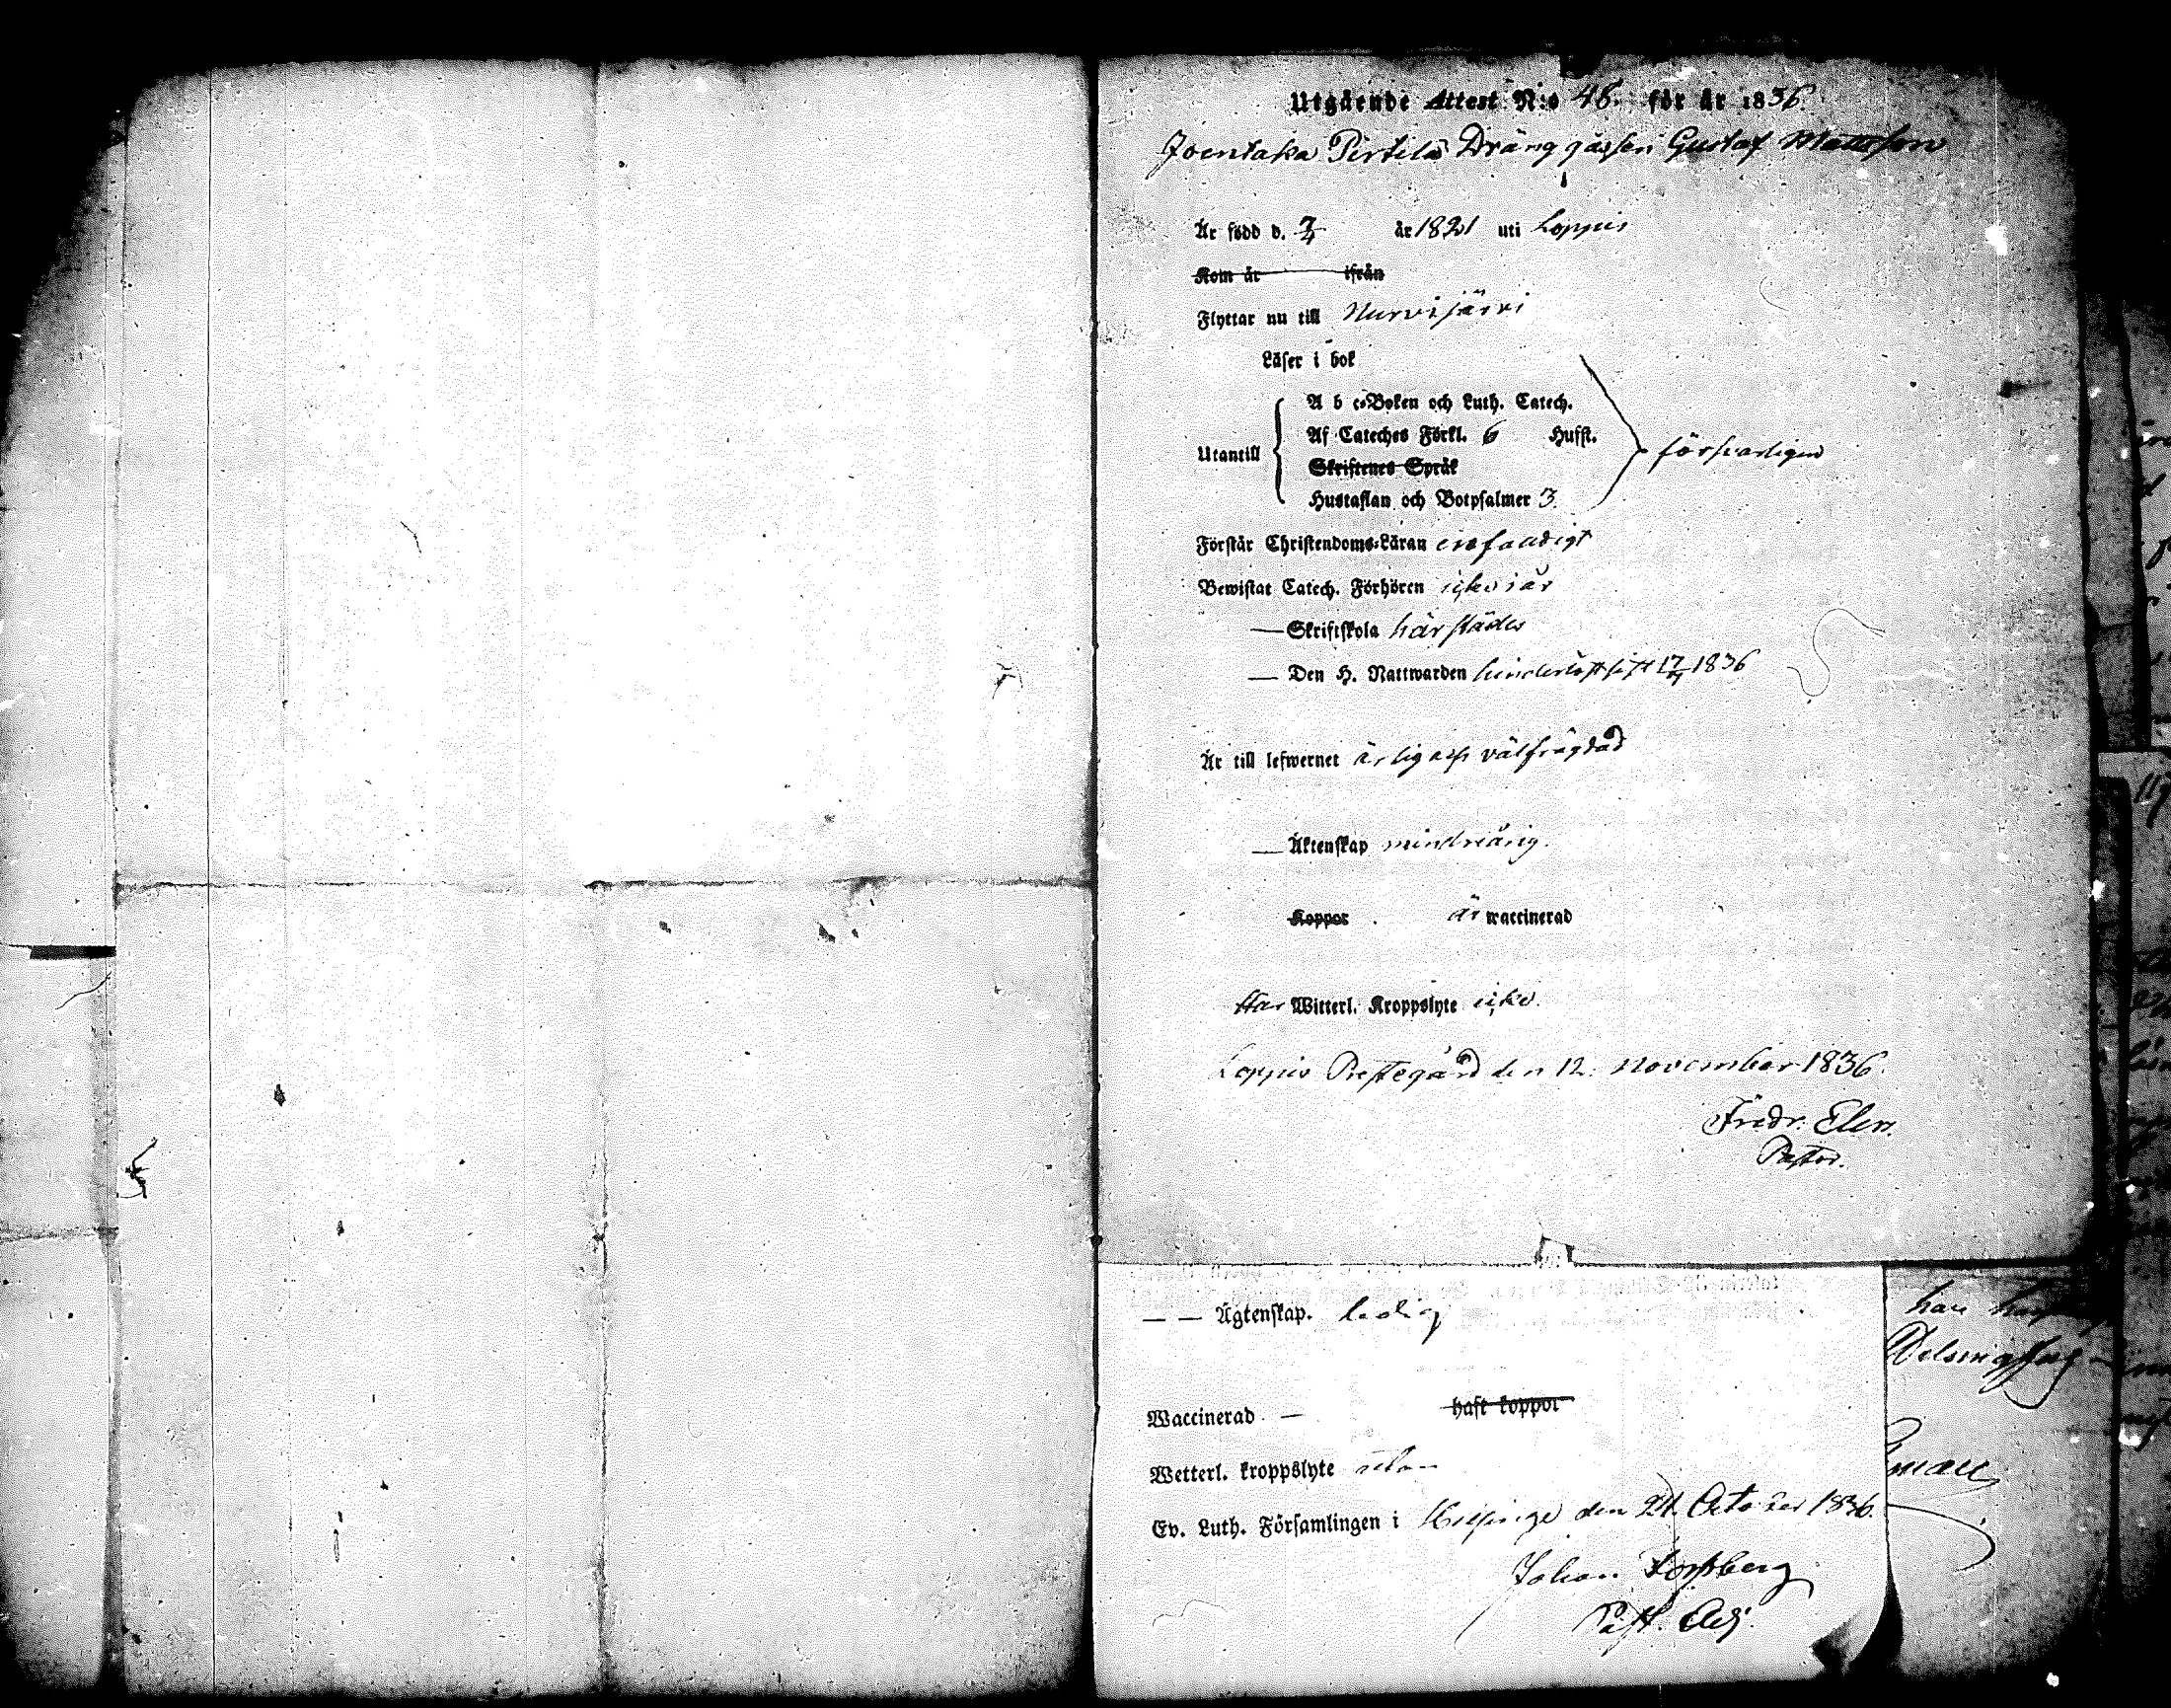 Utgående Attest N:o 48. för år 1836.
Joentaka Pertilä Dräng gåssen Gustaf Mattsson
Är född d. 7/4 år 1821 uti Loppis
Kom år ifrån
Flyttar nu till Nurmijärvi
Läser i bok
A b c-Boken och Luth. Catech.
Af Cateches Förkl. 6 Hufst.
Utantill försvarligen
Skriftenes Språk
Hustaflan och Botpsalmer 3.
Förstår Christendoms-Läran enfaldigt
Bewistat Catech. Förhören icke i år
— Skriftskola härstädes
— Den H. Nattwarden hinderlöst sist 17/4 1836
Är till lefwernet ärlig och välfrägdad
— Äktenskap mindreårig.
Koppor är waccinerad
Har Witterl. Kroppslyte icke.
Loppis Prestegård den 12. November 1836.
Fredr. Elen.
Pastor.
— — Ägtenskap. ledig
Waccinerad — haft koppor
Wetterl. kroppslyte utan
Ev. Luth. Församlingen i Helsinge den 24. October 1836.
Johan Forssberg
Past. Adj.